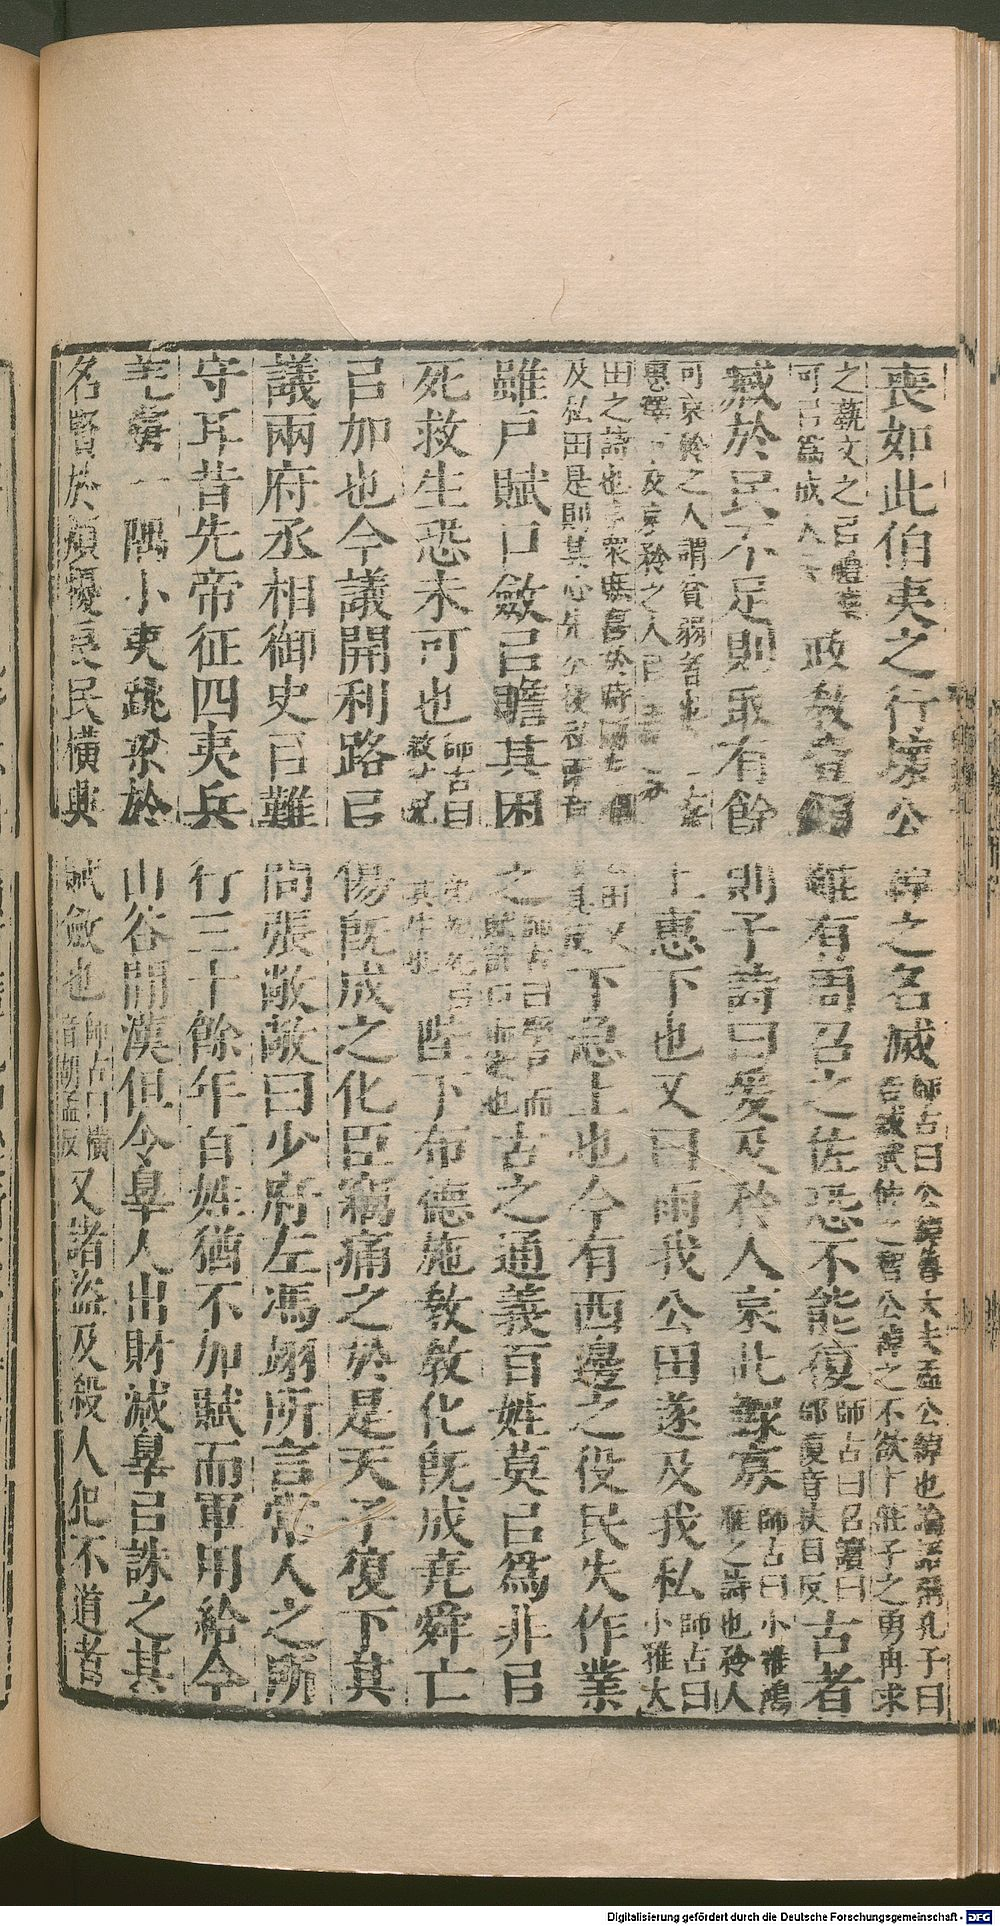 喪如此伯夷之行壞公綽之名滅師古曰公綽魯大夫孟公綽也論語稱孔子曰若臧武仲之智公綽之不欲卞莊子之勇冉求
之蓺文之㠯禮樂可㠯爲成人矣政教壹傾雖有周召之佐恐不能復師古曰召讀曰邵復音扶目反古者
臧於民不足則取有餘則予詩曰爰及矜人哀此鰥寡師古曰小雅鴻雁之詩也矜人
可哀矜之人謂貧弱者也言惠澤下及哀矜之人㠯上惠下也又曰雨我公田遂及我私師古曰小雅大
田之詩也言衆庶喜於時雨先潤公田又及私田是則其心先公後私下急上也今有西邊之役民失作業
雖戶賦口斂㠯贍其困之師古曰率戶而賦計口而斂也古之通義百姓莫㠯爲非㠯
死救生恐未可也師古曰救其生也陛下布德施教教化旣成堯舜亡
㠯加也今議開利路㠯傷旣成之化臣竊痛之於是天子復下其
議兩府丞相御史㠯難問張敞敞曰少府左馮翊所言常人之所
守耳昔先帝征四夷兵行三十餘年百姓猶不加賦而軍用給今
羌虜一隅小夷跳梁於山谷閒漢但令辠人出財減辠㠯誅之其
名賢於煩擾良民橫興賦斂也師古曰橫音胡孟反又諸盜及殺人犯不道者
Digitalisierung gefördert durch die Deutsche Forschungsgemeinschaft - DFG